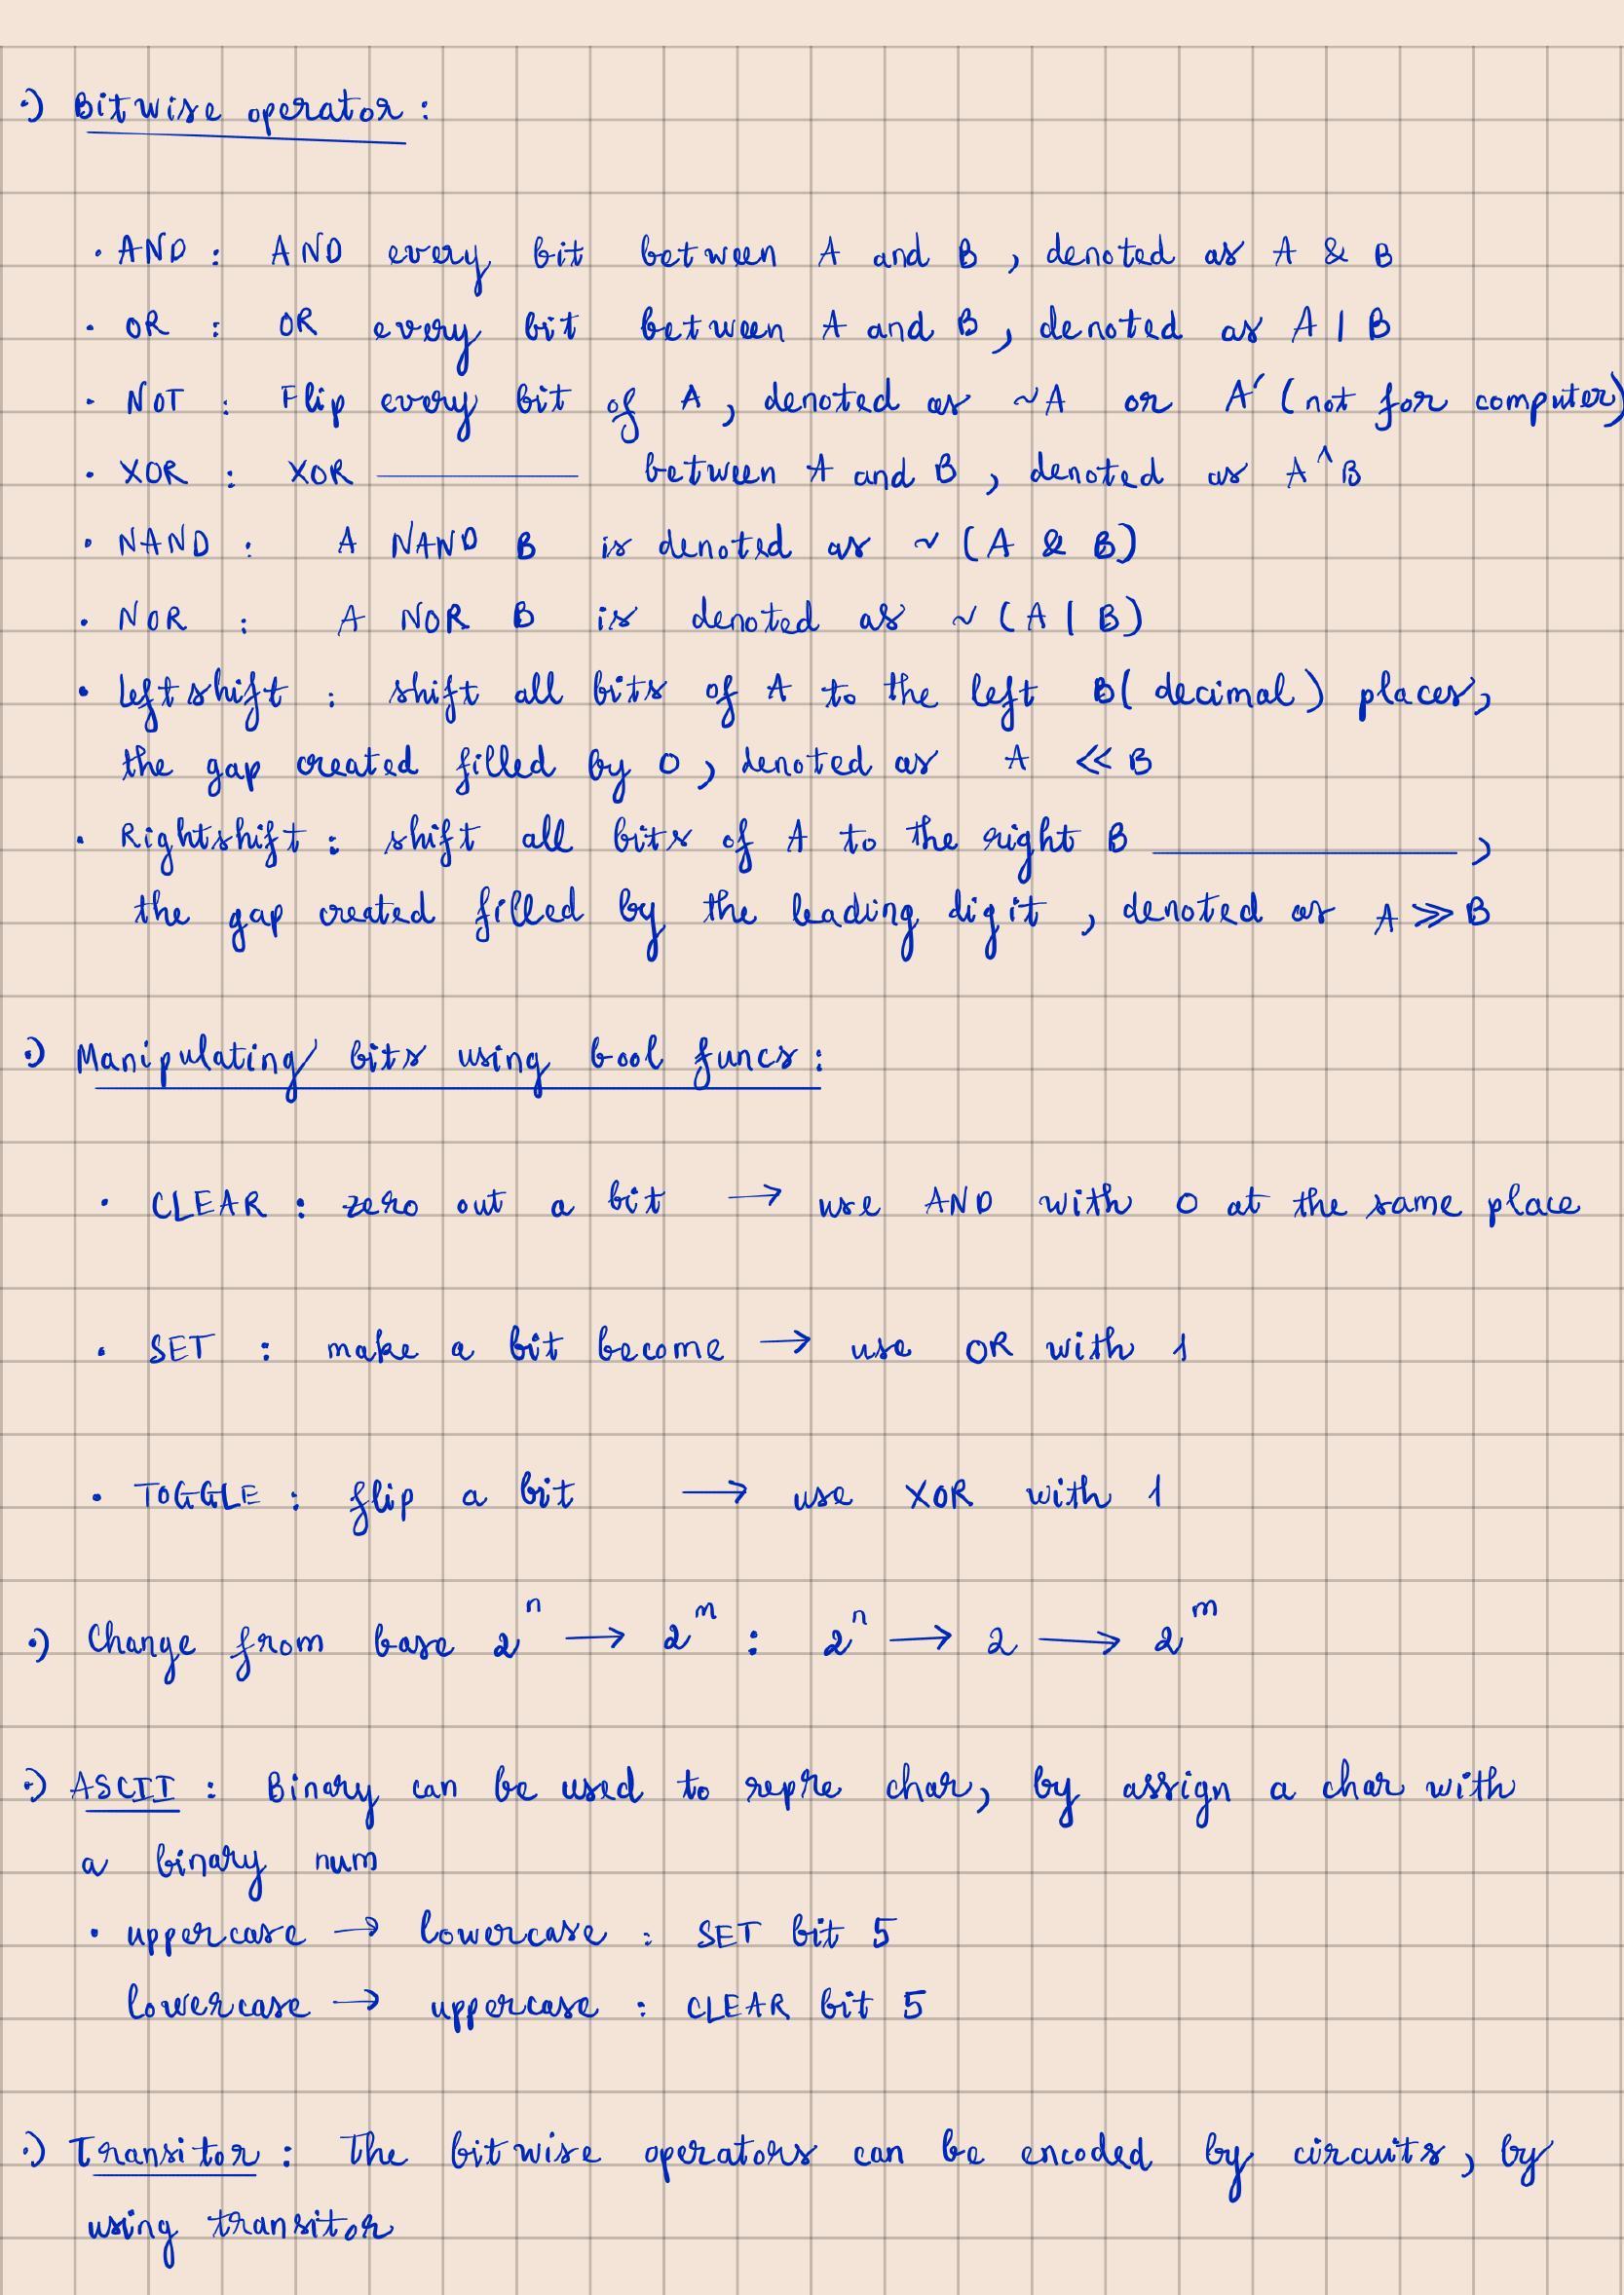 ·) Bitwise operator :
· AND : AND every bit between A and B , denoted as A & B
· OR : OR every bit between A and B , denoted as A | B
· NOT : Flip every bit of A , denoted as ~A or A' (not for computer)
· XOR : XOR ———— between A and B , denoted as A ^ B
· NAND : A NAND B is denoted as ~ (A & B)
· NOR : A NOR B is denoted as ~ (A | B)
· Leftshift : shift all bits of A to the left B( decimal) places,
the gap created filled by 0 , denoted as A << B
· Rightshift : shift all bits of A to the right B ———— ,
the gap created filled by the leading digit , denoted as A >> B
·) Manipulating bits using bool funcs :
· CLEAR : zero out a bit → use AND with 0 at the same place
· SET : make a bit become → use OR with 1
· TOGGLE : flip a bit → use XOR with 1
·) Change from base 2^n → 2^m : 2^n → 2 → 2^m
·) ASCII : Binary can be used to repre char, by assign a char with
a binary num
· uppercase → lowercase : SET bit 5
lowercase → uppercase : CLEAR bit 5
·) Transitor : The bitwise operators can be encoded by circuits, by
using transitor